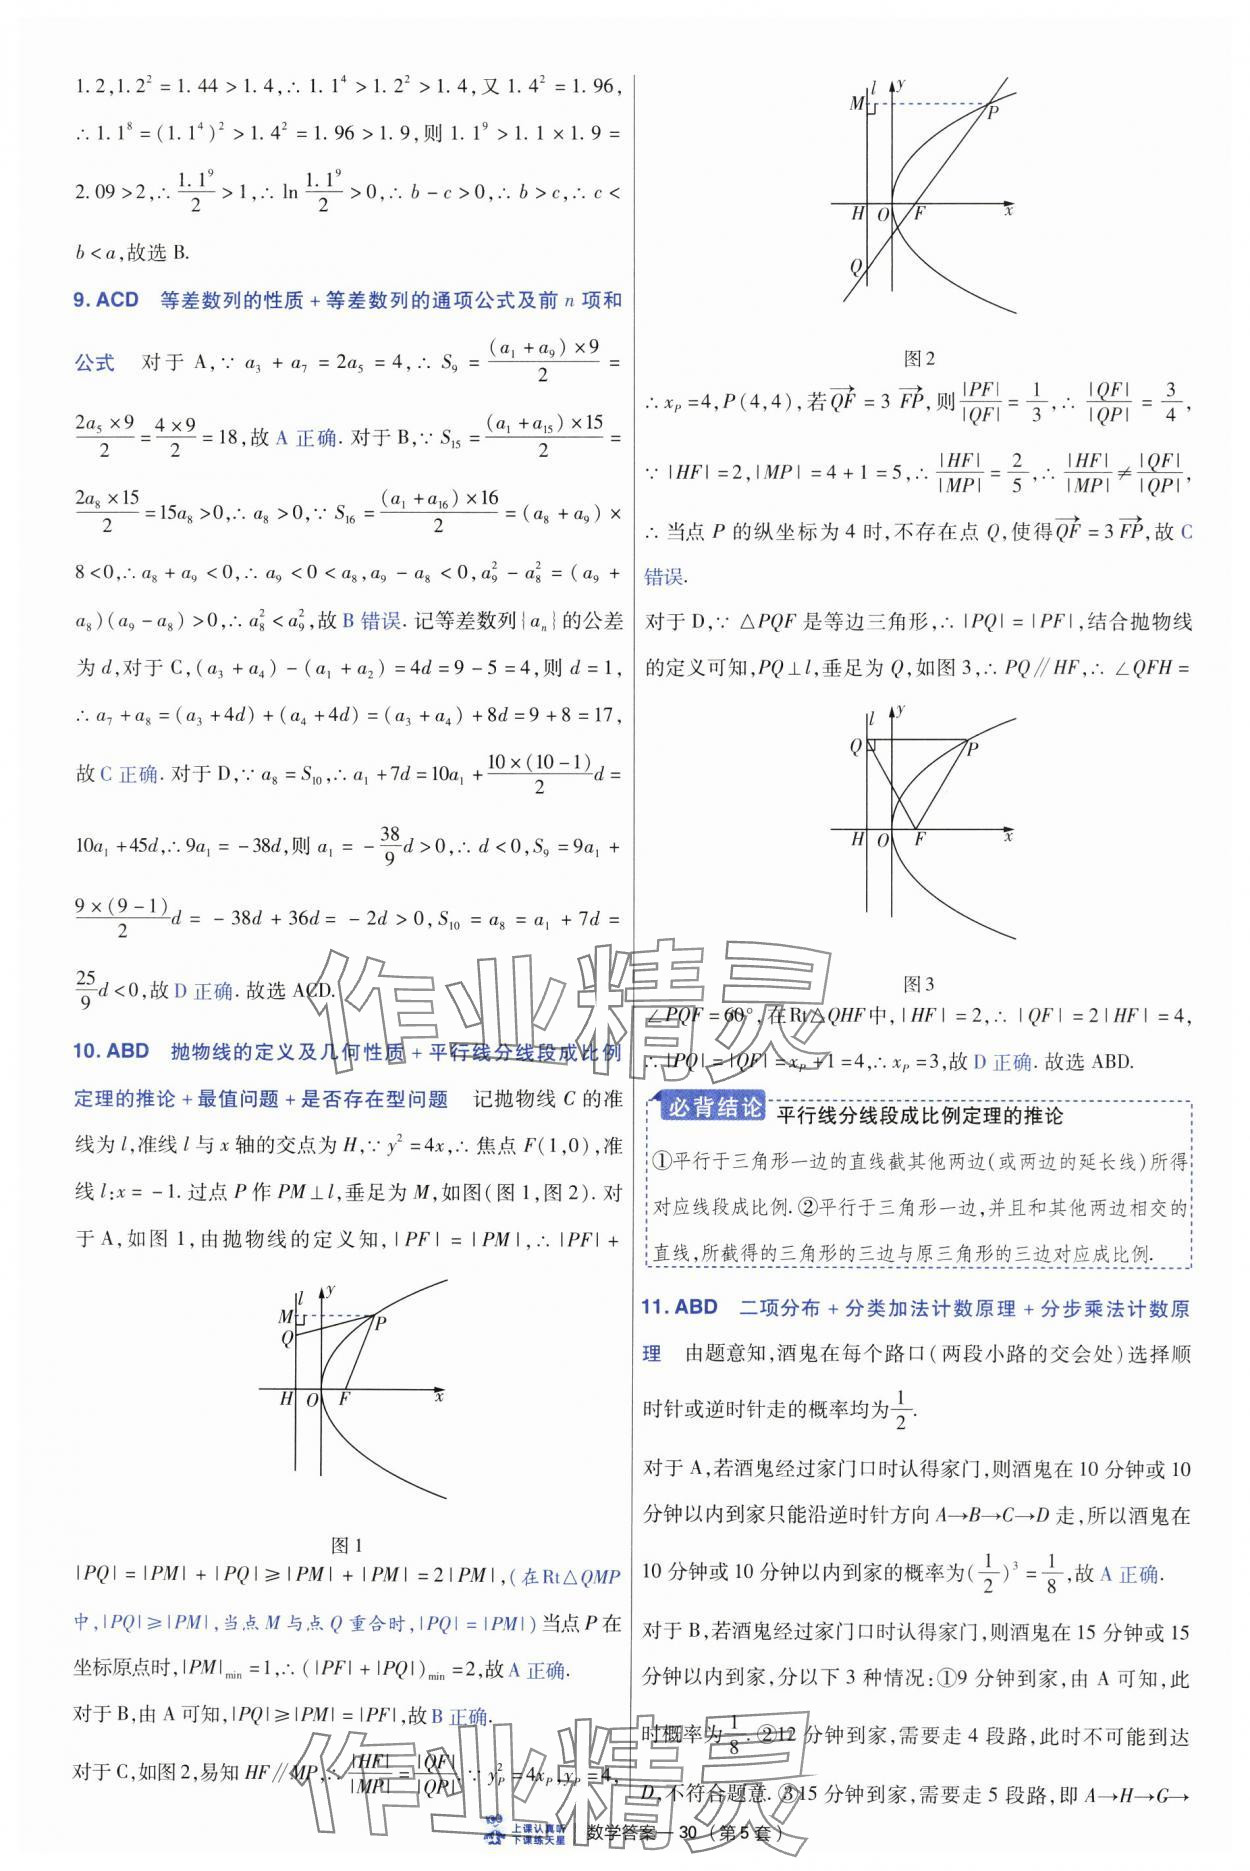 1.2,1.2²=1.44>1.4,∴1.1⁴>1.2²>1.4,又1.4²=1.96,
∴1.1⁸=(1.1⁴)²>1.4²=1.96>1.9,则1.1⁹>1.1×1.9=
2.09>2,∴1.1⁹/2>1,∴ln 1.1⁹/2>0,∴b-c>0,∴b>c,∴c<
b<a,故选B.
9. ACD 等差数列的性质+等差数列的通项公式及前n项和
公式 对于A,∵a₃+a₇=2a₅=4,∴S₉=(a₁+a₉)×9/2=
2a₅×9/2=4×9/2=18,故A正确.对于B,∵S₁₅=(a₁+a₁₅)×15/2=
2a₈×15/2=15a₈>0,∴a₈>0,∵S₁₆=(a₁+a₁₆)×16/2=(a₈+a₉)×
8<0,∴a₈+a₉<0,∴a₉<0<a₈,a₉-a₈<0,a₉²-a₈²=(a₉+
a₈)(a₉-a₈)>0,∴a₈²<a₉²,故B错误.记等差数列{aₙ}的公差
为d,对于C,(a₃+a₄)-(a₁+a₂)=4d=9-5=4,则d=1,
∴a₇+a₈=(a₃+4d)+(a₄+4d)=(a₃+a₄)+8d=9+8=17,
故C正确.对于D,∵a₈=S₁₀,∴a₁+7d=10a₁+10×(10-1)/2 d=
10a₁+45d,∴9a₁=-38d,则a₁=-38/9 d>0,∴d<0,S₉=9a₁+
9×(9-1)/2 d=-38d+36d=-2d>0,S₁₀=a₈=a₁+7d=
25/9 d<0,故D正确.故选ACD.
10. ABD 抛物线的定义及几何性质+平行线分线段成比例
定理的推论+最值问题+是否存在型问题 记抛物线C的准
线为l,准线l与x轴的交点为H,∵y²=4x,∴焦点F(1,0),准
线l:x=-1.过点P作PM⊥l,垂足为M,如图(图1,图2).对
于A,如图1,由抛物线的定义知,|PF|=|PM|,∴|PF|+
l y
M P
Q
H O F x
图1
|PQ|=|PM|+|PQ|≥|PM|+|PM|=2|PM|,(在Rt△QMP
中,|PQ|≥|PM|,当点M与点Q重合时,|PQ|=|PM|)当点P在
坐标原点时,|PM|min=1,∴(|PF|+|PQ|)min=2,故A正确.
对于B,由A可知,|PQ|≥|PM|=|PF|,故B正确.
对于C,如图2,易知HF∥MP,∴|HF|/|MP|=|QF|/|QP|.∵yₚ²=4xₚ,yₚ=4,
l y
M P
H O F x
Q
图2
∴xₚ=4,P(4,4),若QF→=3FP→,则|PF|/|QF|=1/3,∴|QF|/|QP|=3/4,
∵|HF|=2,|MP|=4+1=5,∴|HF|/|MP|=2/5,∴|HF|/|MP|≠|QF|/|QP|,
∴当点P的纵坐标为4时,不存在点Q,使得QF→=3FP→,故C
错误.
对于D,∵△PQF是等边三角形,∴|PQ|=|PF|,结合抛物线
的定义可知,PQ⊥l,垂足为Q,如图3,∴PQ∥HF,∴∠QFH=
l y
Q P
H O F x
图3
∠PQF=60°,在Rt△QHF中,|HF|=2,∴|QF|=2|HF|=4,
∴|PQ|=|QF|=xₚ+1=4,∴xₚ=3,故D正确.故选ABD.
必背结论 平行线分线段成比例定理的推论
①平行于三角形一边的直线截其他两边(或两边的延长线)所得
对应线段成比例.②平行于三角形一边,并且和其他两边相交的
直线,所截得的三角形的三边与原三角形的三边对应成比例.
11. ABD 二项分布+分类加法计数原理+分步乘法计数原
理 由题意知,酒鬼在每个路口(两段小路的交会处)选择顺
时针或逆时针走的概率均为1/2.
对于A,若酒鬼经过家门口时认得家门,则酒鬼在10分钟或10
分钟以内到家只能沿逆时针方向A→B→C→D走,所以酒鬼在
10分钟或10分钟以内到家的概率为(1/2)³=1/8,故A正确.
对于B,若酒鬼经过家门口时认得家门,则酒鬼在15分钟或15
分钟以内到家,分以下3种情况:①9分钟到家,由A可知,此
时概率为1/8.②12分钟到家,需要走4段路,此时不可能到达
D,不符合题意.③15分钟到家,需要走5段路,即A→H→G→
作业精灵
作业精灵
上课认真听
下课练天星
数学答案—30(第5套)